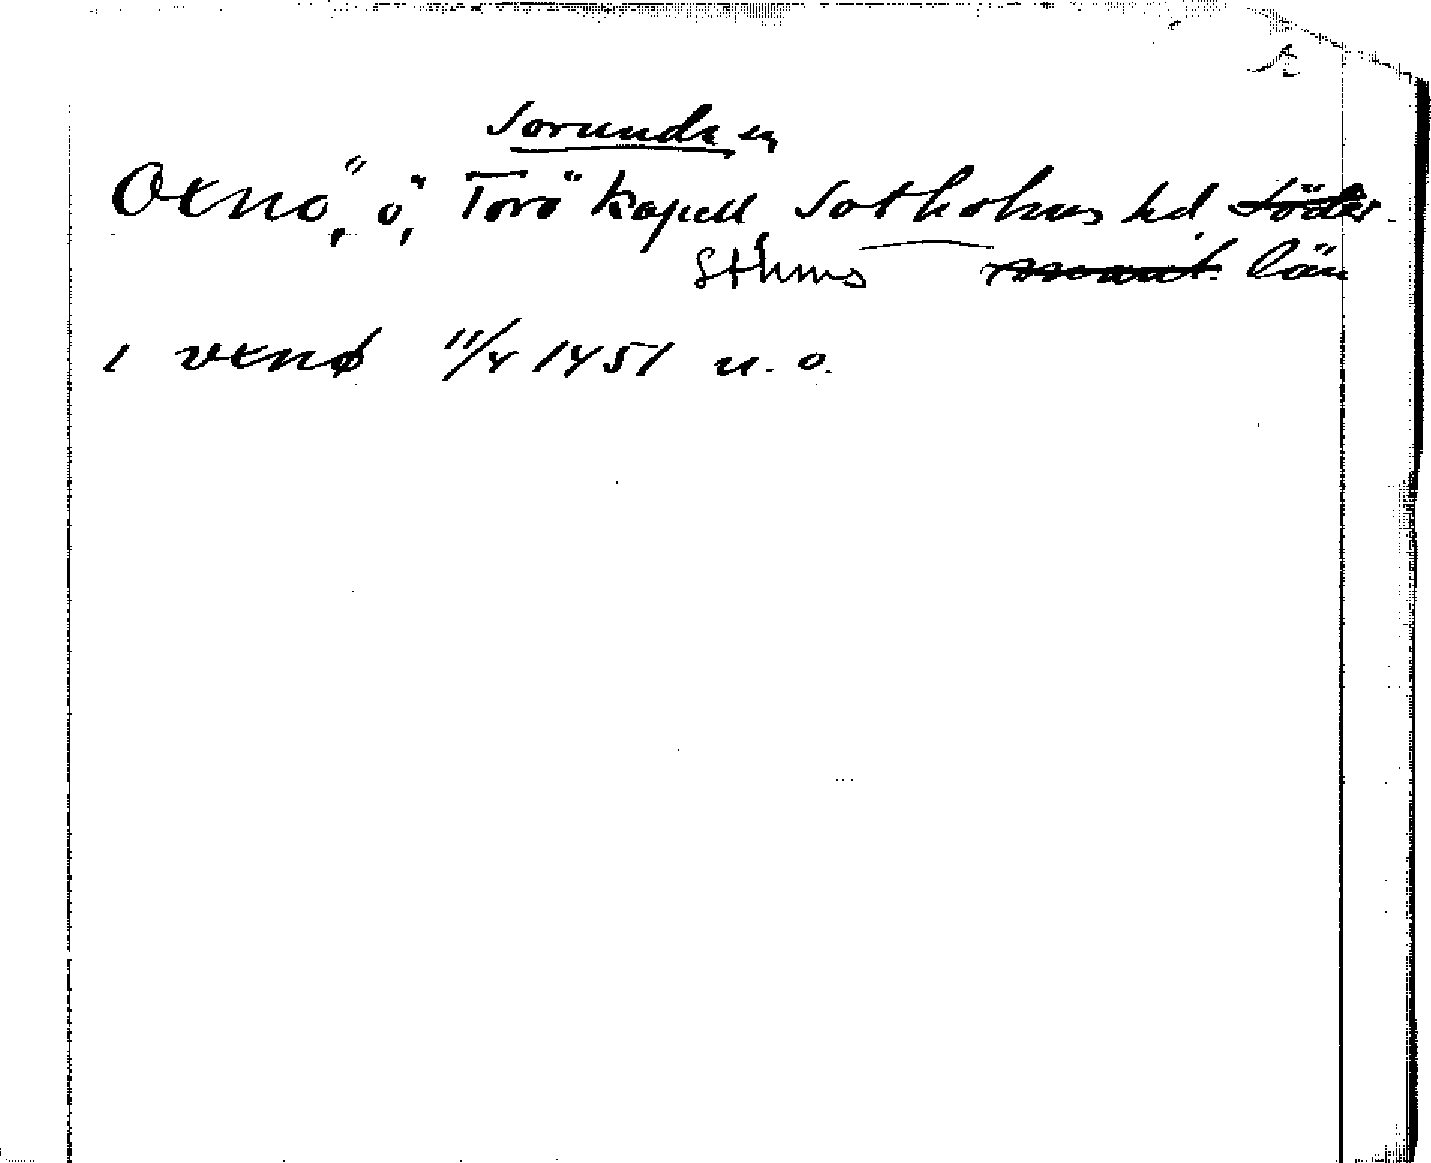 Sorunda sn
Oxnö, ö, Torö kapell, Sotholms hd, Söder-
Sthms manl. län
i vxnø 11/4 1451 u. o.